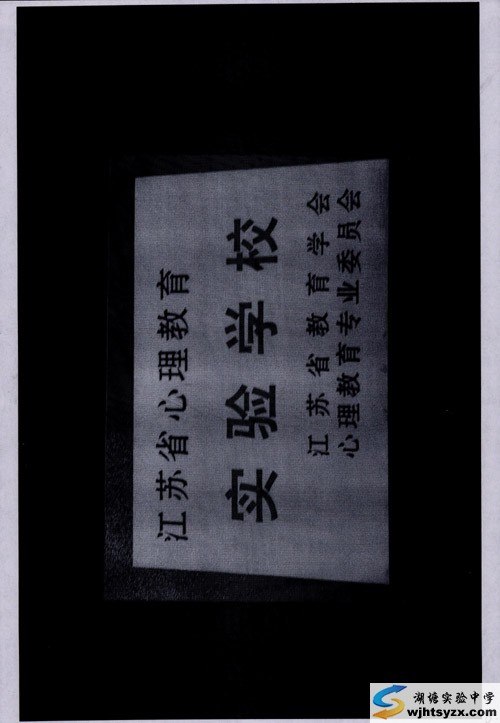 江苏省心理教育
实验学校
江苏省教育学会
心理教育专业委员会
湖塘实验中学
wjhtsyzx.com